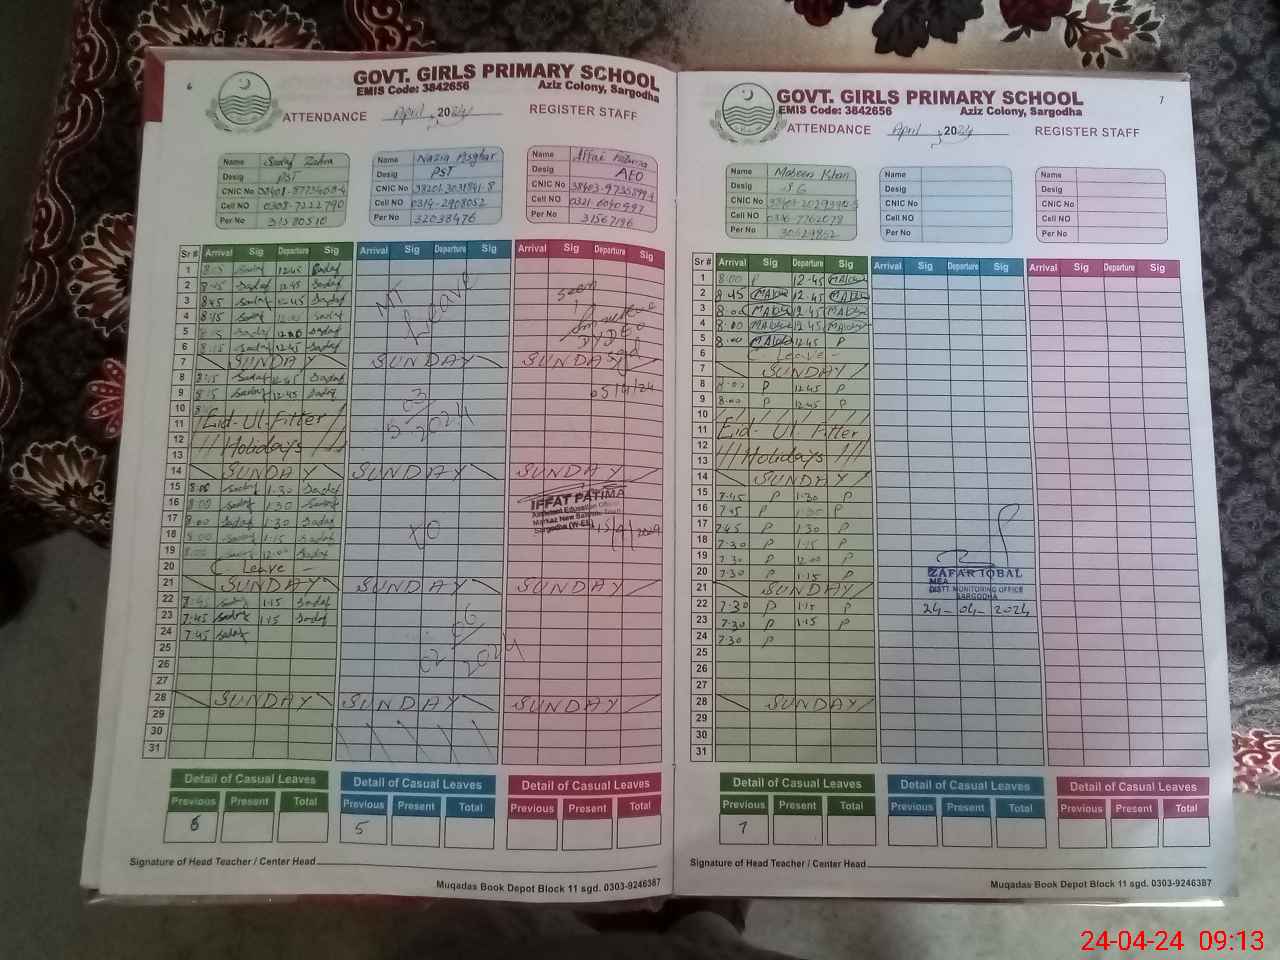 6
GOVT. GIRLS PRIMARY SCHOOL
EMIS Code: 3842656 Aziz Colony, Sargodha
ATTENDANCE April 2024 REGISTER STAFF
Name Sadaf Zahra
Desig PST
CNIC No
Cell NO 0308-7222790
Per No 31580510
Name Nazia Asghar
Desig PST
CNIC No 38201-3031841-8
Cell NO 0314-2908052
Per No 32038476
Name Iffat Fatima
Desig AEO
CNIC No 38403-9735899-4
Cell NO 0321-6040997
Per No 31567196
Sr # Arrival Sig Departure Sig Arrival Sig Departure Sig Arrival Sig Departure Sig
1 8:15 Sadaf 12:45 Sadaf
2 8:15 Sadaf 12:45 Sadaf
3 8:45 Sadaf 12:45 Sadaf
4 8:15 Sadaf Sadaf
5 8:15 Sadaf 12:00 Sadaf
6 8:15 Sadaf 12:45 Sadaf
MT Leave
Seen
7 SUNDAY SUNDAY SUNDAY
8 8:15 Sadaf 12:45 Sadaf
9 8:15 Sadaf 12:45 Sadaf
03
5-2024
10
11 Eid-Ul-Fitter
12 Holidays
13
14 SUNDAY SUNDAY SUNDAY
IFFAT FATIMA
Assistant Education Officer
Sargodha (W-EE)
15 8:00 Sadaf 1:30 Sadaf
16 8:00 Sadaf 1:30 Sadaf
17 8:00 Sadaf 1:30 Sadaf
18 8:00 Sadaf 1:15 Sadaf
19 8:00 Sadaf 12:00 Sadaf
to
20 C. Leave -
21 SUNDAY SUNDAY SUNDAY
22 7:45 Sadaf 1:15 Sadaf
23 7:45 Sadaf 1:15 Sadaf
24 7:45 Sadaf
02 06 2024
25
26
27
28 SUNDAY SUNDAY SUNDAY
29
30
31
Detail of Casual Leaves Detail of Casual Leaves Detail of Casual Leaves
Previous Present Total Previous Present Total Previous Present Total
6 5
Signature of Head Teacher / Center Head
Muqadas Book Depot Block 11 sgd. 0303-9246387
7
GOVT. GIRLS PRIMARY SCHOOL
EMIS Code: 3842656 Aziz Colony, Sargodha
ATTENDANCE April 2024 REGISTER STAFF
Name Maheen Khan
Desig
CNIC No
Cell NO 0336-7762078
Per No
Name
Desig
CNIC No
Cell NO
Per No
Name
Desig
CNIC No
Cell NO
Per No
Sr # Arrival Sig Departure Sig Arrival Sig Departure Sig Arrival Sig Departure Sig
1 8:00 P 12:45
2 8:45 12:45
3 8:00 12:45
4 8:00 12:45
5 8:00 12:45 P
6 C. Leave -
7 SUNDAY
8 8:00 P 12:45 P
9 8:00 P 12:45 P
10
11 Eid-Ul-Fitter
12 Holidays
13
14 SUNDAY
15 7:45 P 1:30 P
16 7:45 P 1:30 P
17 7:45 P 1:30 P
18 7:30 P 1:15 P
19 7:30 P 12:00 P
20 7:30 P 1:15 P
21 SUNDAY
22 7:30 P 1:15 P
23 7:30 P 1:15 P
24 7:30 P
25
26
27
28 SUNDAY
29
30
31
ZAFAR IQBAL
MEA
DISTT. MONITORING OFFICE
SARGODHA
24-04-2024
Detail of Casual Leaves Detail of Casual Leaves Detail of Casual Leaves
Previous Present Total Previous Present Total Previous Present Total
7
Signature of Head Teacher / Center Head
Muqadas Book Depot Block 11 sgd. 0303-9246387
24-04-24 09:13